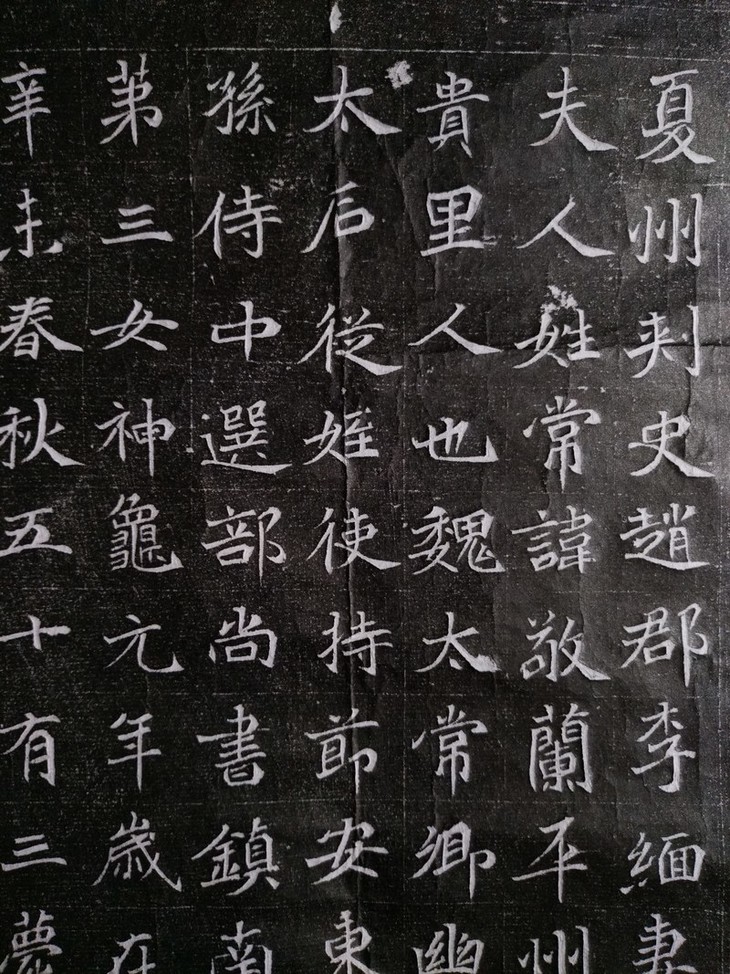 夏州刺史趙郡李緬妻
夫人姓常諱敬蘭平州
貴里人也魏太常卿幽
太后從姪使持節安東
孫侍中選部尚書鎮南
第三女神龜元年歲在
辛未春秋五十有三薨